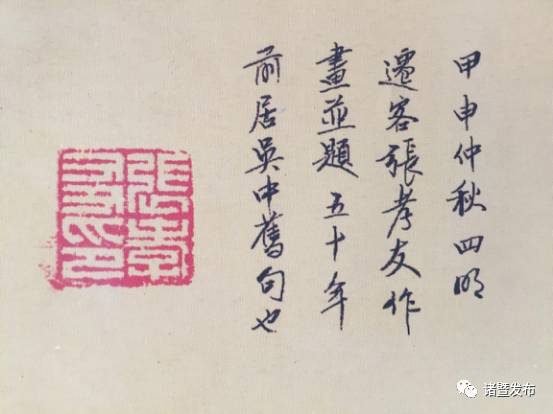 甲申仲秋四明
遷客張孝友作
畫並題五十年
前居吳中舊句也
張孝友印
诸暨发布